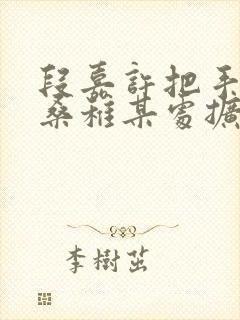 段嘉許把手
桑稚某處擴
李樹茁